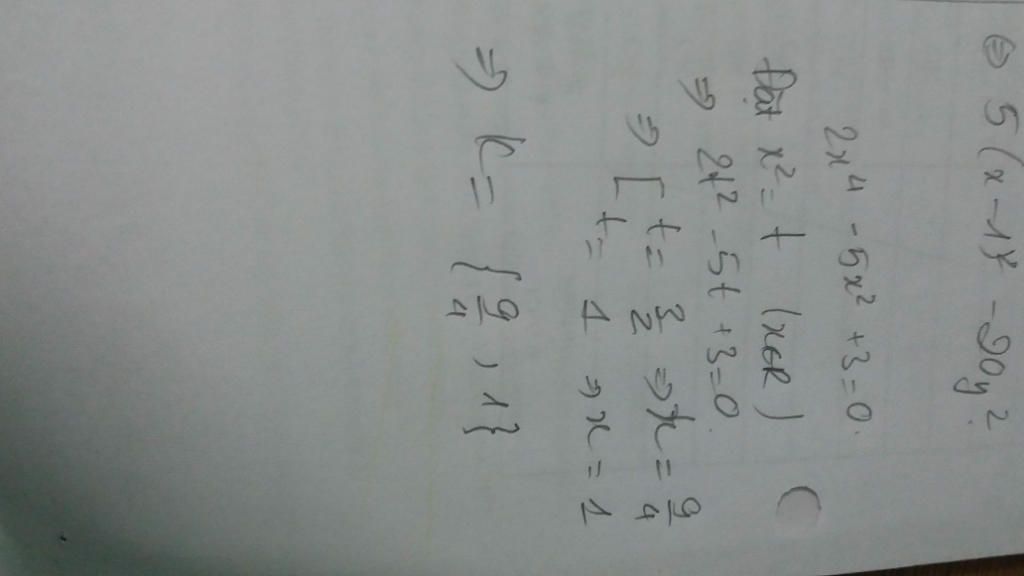 ⇔ 5(x-1)² - 20y².
2x⁴ - 5x² + 3 = 0.
Đặt x² = t (x∈R)
⇒ 2t² - 5t + 3 = 0.
⇒ [ t = 3/2 ⇒ x = 9/4
t = 1 ⇒ x = 1
⇒ k = { 9/4 , 1 }